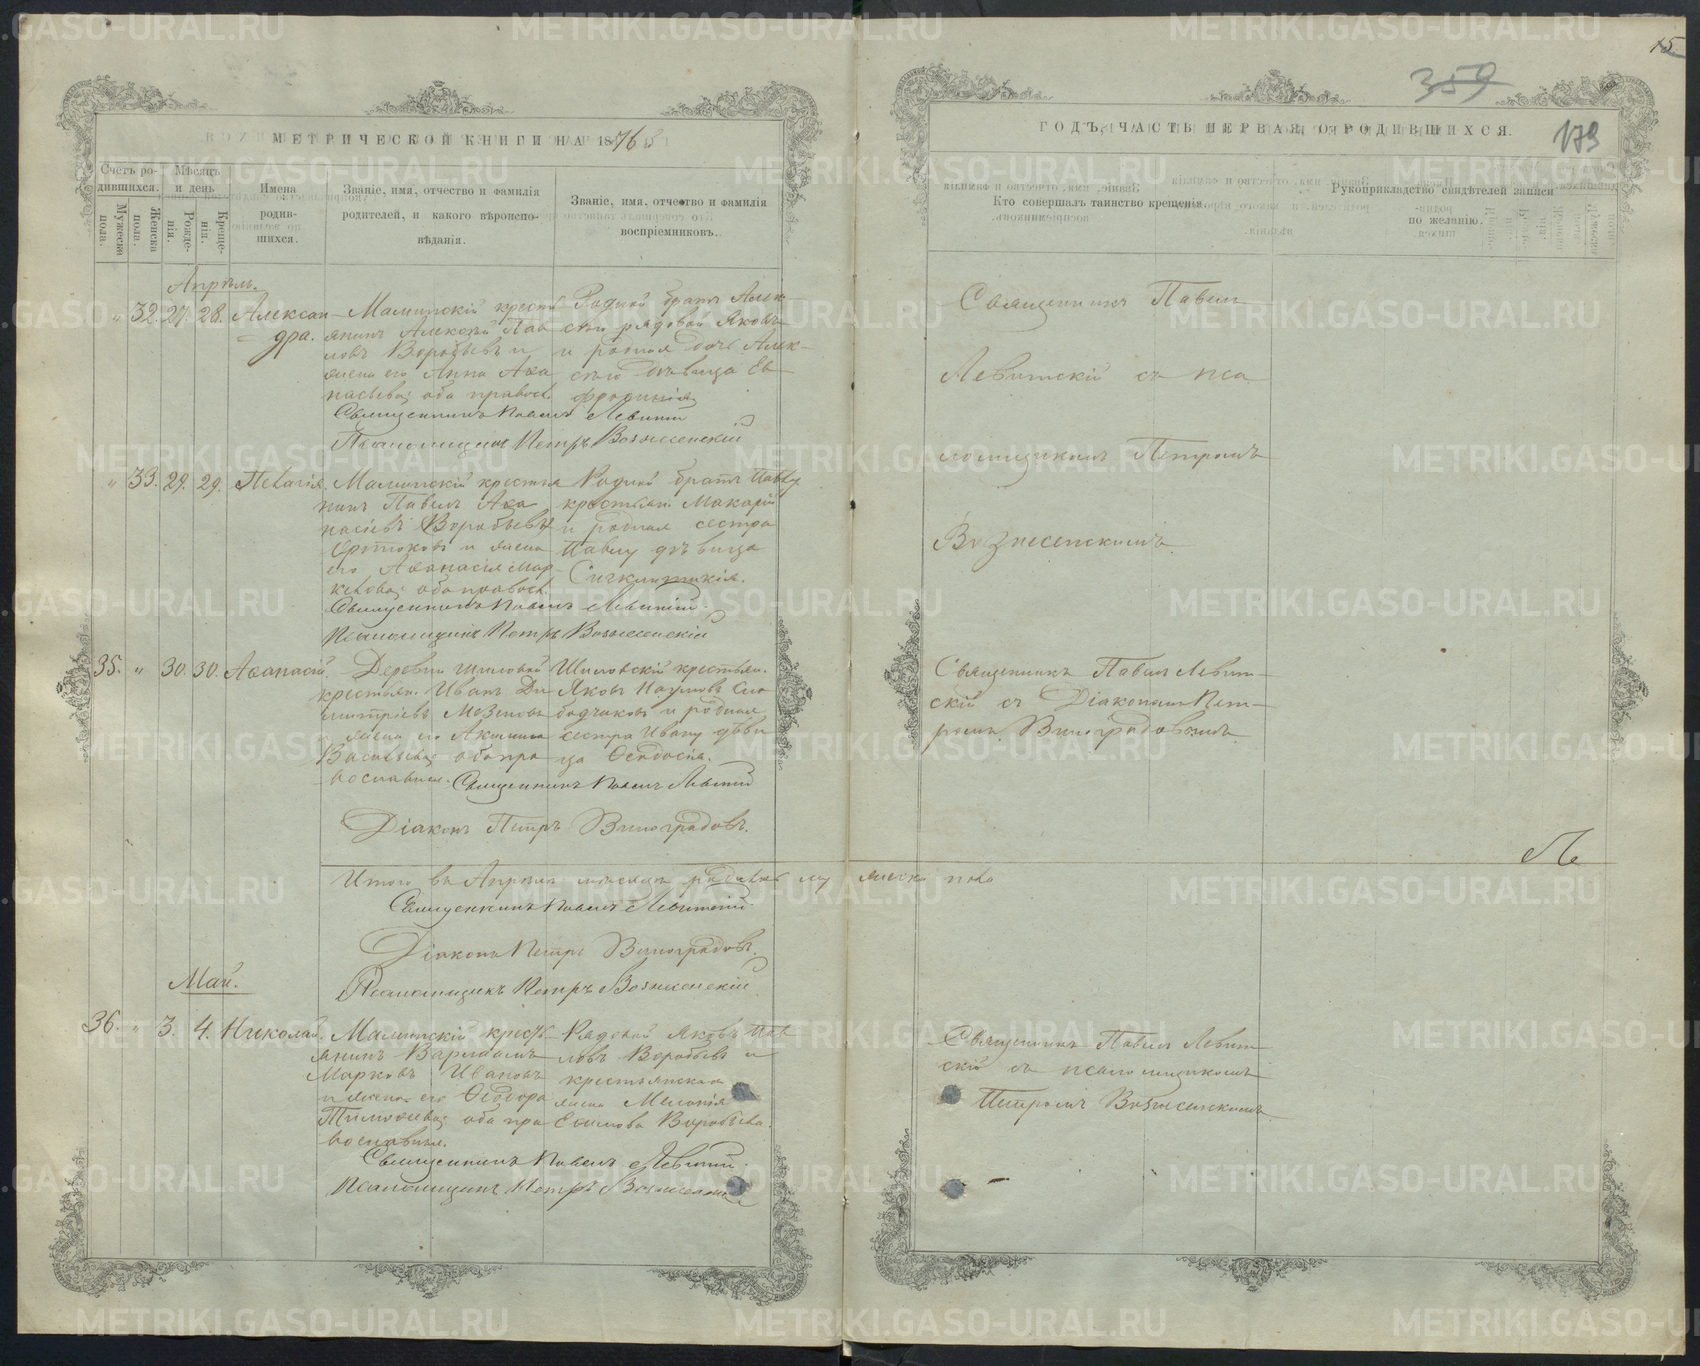 15
359
179
МЕТРИЧЕСКОЙ КНИГИ НА 1876
ГОДЪ, ЧАСТЬ ПЕРВАЯ, О РОДИВШИХСЯ.
Счетъ родившихся.
Мужеска пола.
Женска пола.
Мѣсяцъ и день
Рожденія.
Крещенія.
Имена родившихся.
Званіе, имя, отчество и фамилія родителей, и какого вѣроисповѣданія.
Званіе, имя, отчество и фамилія воспріемниковъ.
Кто совершалъ таинство крещенія.
Рукоприкладство свидѣтелей записи по желанію.
Апрѣль.
" 32. 27. 28. Александра.
Малинскій крестьянинъ Алексѣй Павловъ Воробьевъ и жена его Анна Аѳанасьева; оба правосл.
Родной братъ Алексѣю рядовой Яковъ и родная дочь Алексѣю дѣвица Евфросинія
Священникъ Павелъ Левитскій съ псаломщикомъ Петромъ Вознесенскимъ.
Священникъ Павелъ Левитскій
Псаломщикъ Петръ Вознесенскій
" 33. 29. 29. Пелагія.
Малинскій крестьянинъ Павелъ Аѳанасіевъ Воробьевъ и жена его Аѳанасія; оба правосл.
Родной братъ Павлу крестьян. Макарій и родная сестра Павлу дѣвица Сигклитикія.
Священникъ Павелъ Левитскій.
Псаломщикъ Петръ Вознесенскій
35. " 30. 30. Аѳанасій.
Деревни Шиловой крестьян. Иванъ Димитріевъ и жена его Акилина Васильева; оба православные.
Шиловскій крестьян. Яковъ Наумовъ Слободчиковъ и родная сестра Ивану дѣвица Ѳеодосія.
Священникъ Павелъ Левитскій съ Діакономъ Петромъ Виноградовымъ.
Священникъ Павелъ Левитскій
Діаконъ Петръ Виноградовъ.
Итого въ Апрѣлѣ мѣсяцѣ родилось му женска пола
Священникъ Павелъ Левитскій.
Діаконъ Петръ Виноградовъ.
Псаломщикъ Петръ Вознесенскій
Май.
36. " 3. 4. Николай.
Малинскій крестьянинъ Варлаамъ Марковъ Ивановъ и жена его Ѳеодора Тимоѳеева; оба православные.
Рядовой Яковъ Павловъ Воробьевъ и крестьянская жена Меланія Воробьева.
Священникъ Павелъ Левитскій съ псаломщикомъ Петромъ Вознесенскимъ
Священникъ Павелъ Левитскій.
Псаломщикъ Петръ Вознесенскій
METRIKI.GASO-URAL.RU